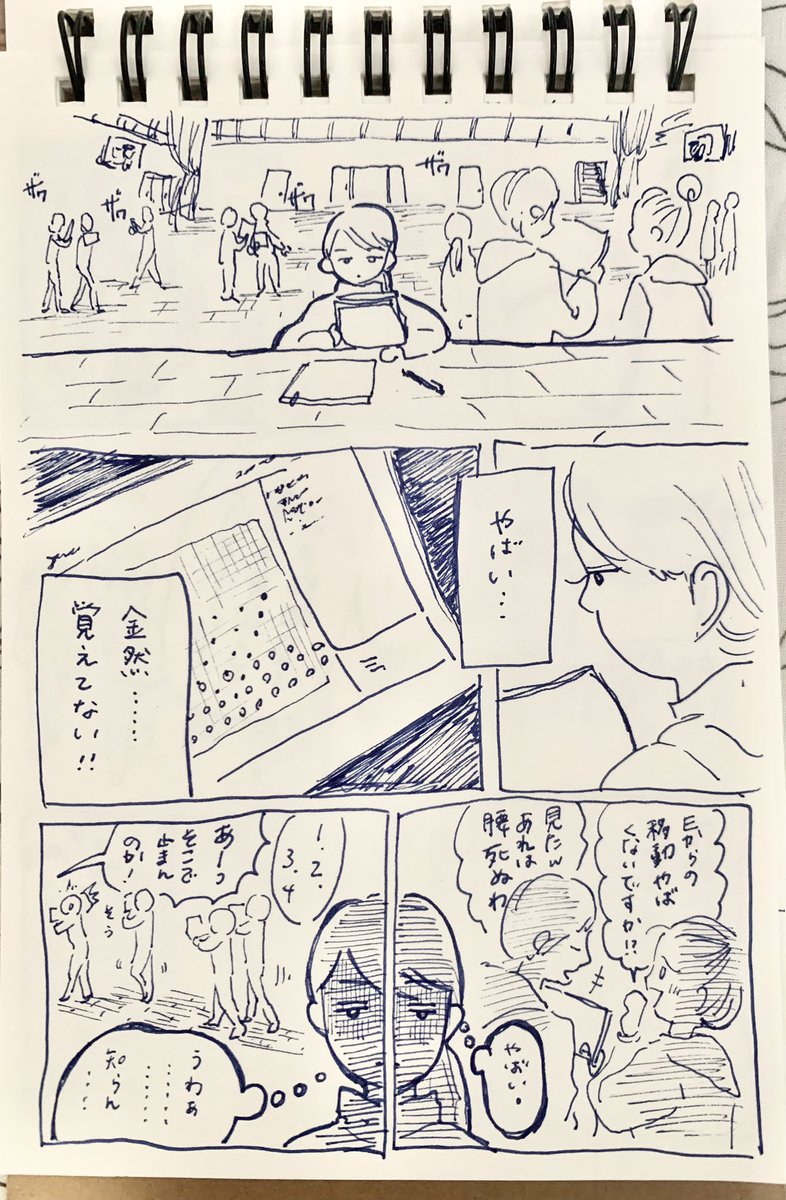 ザワ
ザワ
ザワ
ザワ
やばい…
全然……
覚えてない!!
Eからの
移動やば
くないですか!?
見たw
あれは
腰死ぬわ
やばい。
1.2.
3.4
あーっ
そこで
止まん
のか!
そう
うわぁ
……
知らん
……